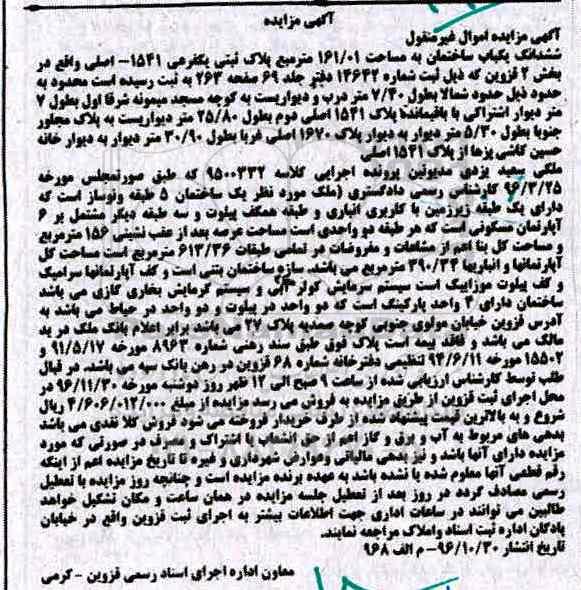 آگهی مزایده
آگهی مزایده اموال غیرمنقول
ششدانگ یکباب ساختمان به مساحت ۱۶۱/۰۱ مترمربع پلاک ثبتی یکفرعی ۱۵۴۱- اصلی واقع در
بخش ۲ قزوین که ذیل ثبت شماره ۱۳۶۳۲ دفتر جلد ۶۹ صفحه ۲۶۳ به ثبت رسیده است محدود به
حدود ذیل حدود شمالا بطول ۷/۴۰ متر درب و دیواریست به کوچه مسجد میمونه شرقا اول بطول ۷
متر دیوار اشتراکی با باقیمانده پلاک ۱۵۴۱ اصلی دوم بطول ۲۵/۸۰ متر دیواریست به پلاک مجاور
جنوبا بطول ۵/۳۰ متر دیوار به دیوار پلاک ۱۶۷۰ اصلی غربا بطول ۳۰/۹۰ متر دیوار به دیوار خانه
حسین کاشی پزها از پلاک ۱۵۴۱ اصلی
ملکی سعید یزدی مدیونین پرونده اجرایی کلاسه ۹۵۰۰۳۳۲ که طبق صورتمجلس مورخه
۹۶/۳/۲۵ کارشناس رسمی دادگستری (ملک مورد نظر یک ساختمان ۵ طبقه ونوساز است که
دارای یک طبقه زیرزمین با کاربری انباری و طبقه همکف پیلوت و سه طبقه دیگر مشتمل بر ۶
آپارتمان مسکونی است که هر طبقه دو واحدی است مساحت عرصه بعد از عقب نشینی ۱۵۶ مترمربع
و مساحت کل بنا اعم از مشاعات و مفروضات در تمامی طبقات ۶۱۳/۳۶ مترمربع است مساحت کل
آپارتمانها و انباریها ۳۹۰/۳۴ مترمربع می باشد. سازه ساختمان بتنی است و کف آپارتمانها سرامیک
و کف پیلوت موزاییک است سیستم سرمایش کولر آبی و سیستم گرمایش بخاری گازی می باشد
ساختمان دارای ۴ واحد پارکینگ است که دو واحد در پیلوت و دو واحد در حیاط می باشد به
آدرس قزوین خیابان مولوی جنوبی کوچه صمدیه پلاک ۲۷ می باشد برابر اعلام بانک ملک در ید
مالک می باشد و فاقد بیمه است پلاک فوق طبق سند رهنی شماره ۸۹۶۳ مورخه ۹۱/۵/۱۷ و
۱۵۵۰۲ مورخه ۹۴/۶/۱۱ تنظیمی دفترخانه شماره ۶۸ قزوین در رهن بانک سپه می باشد. در قبال
طلب توسط کارشناس ارزیابی شده از ساعت ۹ صبح الی ۱۲ ظهر روز دوشنبه مورخه ۹۶/۱۱/۳۰ در
محل اجرای ثبت قزوین از طریق مزایده به فروش می رسد مزایده از مبلغ ۴/۶۰۶/۰۱۲/۰۰۰ ریال
شروع و به بالاترین قیمت پیشنهاد شده از طرف خریدار فروخته می شود فروش کلا نقدی می باشد
بدهی های مربوط به آب و برق و گاز اعم از حق انشعاب یا اشتراک و مصرف در صورتی که مورد
مزایده دارای آنها باشد و نیز بدهی مالیاتی وعوارض شهرداری و غیره تا تاریخ مزایده اعم از اینکه
رقم قطعی آنها معلوم شده یا نشده باشد به عهده برنده مزایده است و چنانچه روز مزایده با تعطیل
رسمی مصادف گردد در روز بعد از تعطیل جلسه مزایده در همان ساعت و مکان تشکیل خواهد
طالبین می توانند در ساعات اداری جهت اطلاعات بیشتر به اجرای ثبت قزوین واقع در خیابان
پادگان اداره ثبت اسناد واملاک مراجعه نمایند.
تاریخ انتشار ۹۶/۱۰/۳۰- م الف ۹۶۸
معاون اداره اجرای اسناد رسمی قزوین - کرمی